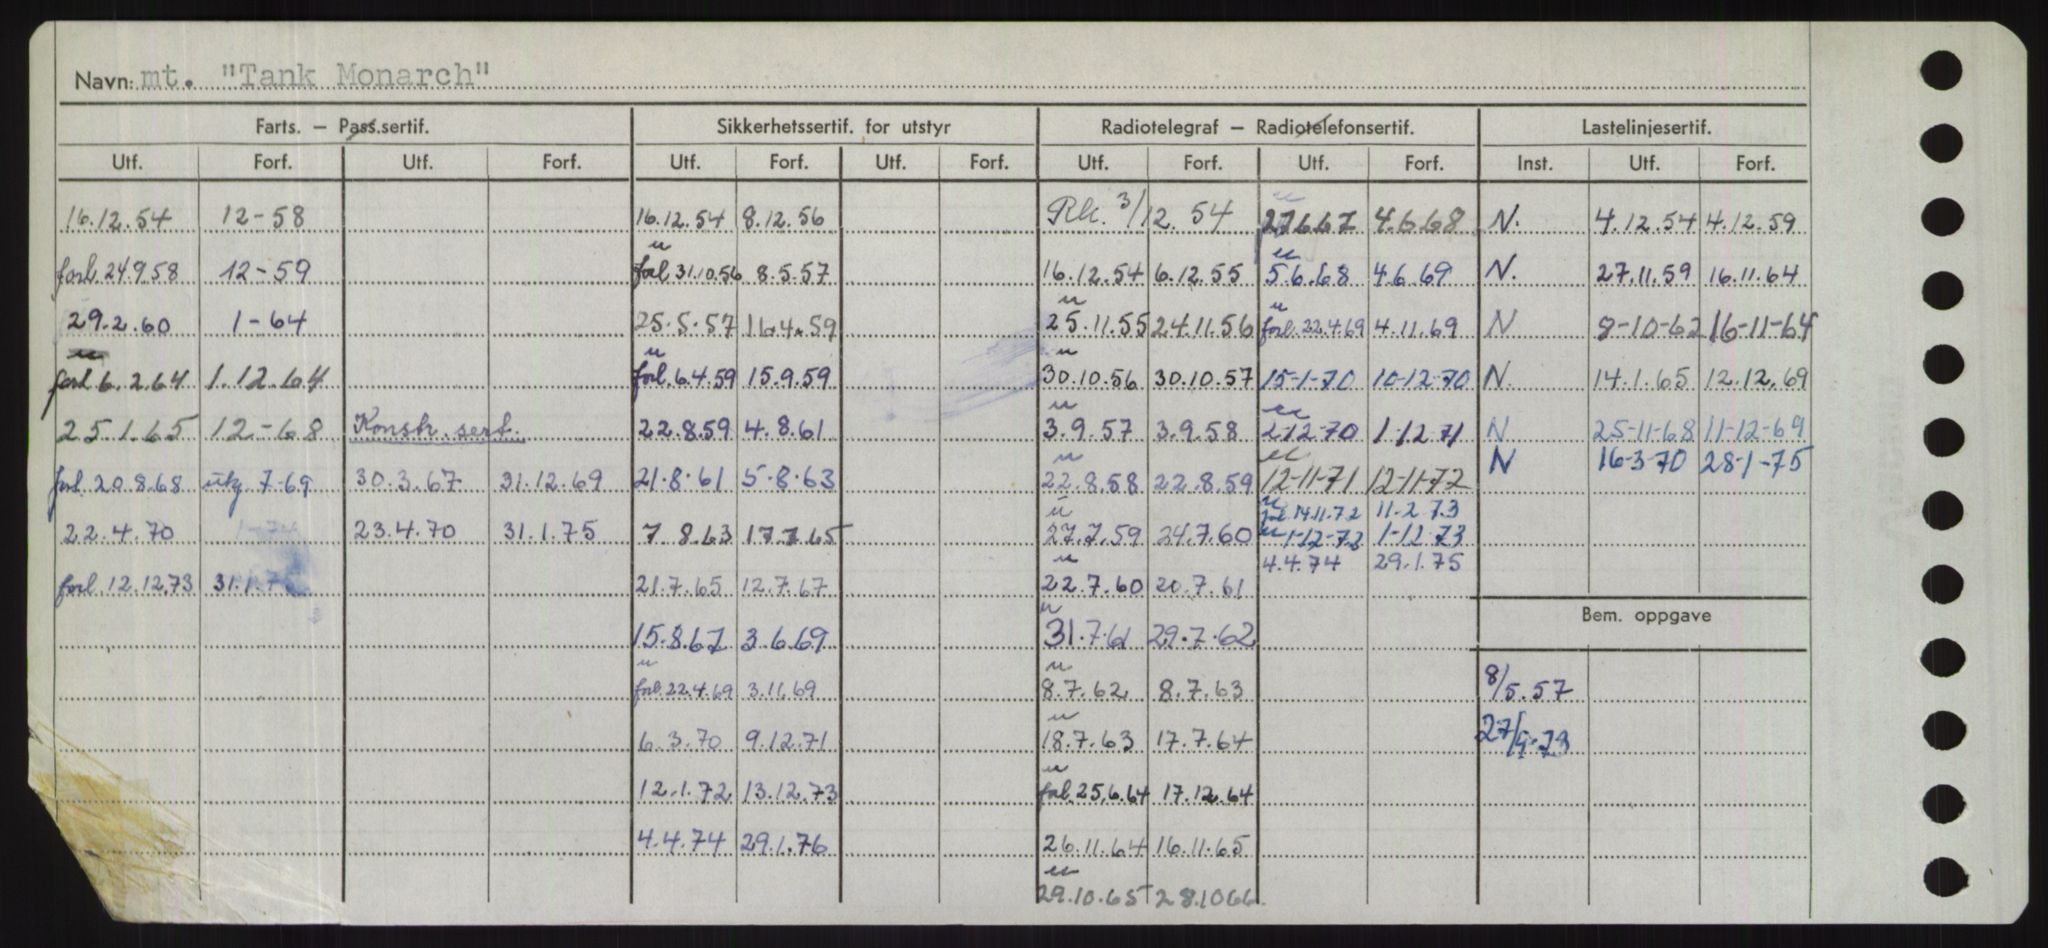 Navn: mt. "Tank Monarch"
Farts. – Pass.sertif. Sikkerhetssertif. for utstyr Radiotelegraf – Radiotelefonsertif. Lastelinjesertif.
Utf. Forf. Utf. Forf. Utf. Forf. Utf. Forf. Utf. Forf. Utf. Forf. Inst. Utf. Forf.
16.12.54 12-58 16.12.54 8.12.56 3/12.54 27.6.67 4.6.68 N. 4.12.54 4.12.59
forl. 24.9.58 12-59 forl 31.10.56 8.5.57 16.12.54 6.12.55 5.6.68 4.6.69 N. 27.11.59 16.11.64
29.2.60 1-64 25.5.57 16.4.59 25.11.55 24.11.56 forl. 22.4.69 4.11.69 N 8-10-62 16-11-64
forl 6.2.64 1.12.64 forl. 6.4.59 15.9.59 30.10.56 30.10.57 15-1-70 10-12-70 N. 14.1.65 12.12.69
25.1.65 12-68 Konstr. sert. 22.8.59 4.8.61 3.9.57 3.9.58 2-12-70 1-12-71 N 25-11-68 11-12-69
forl 20.8.68 utg 7-69 30.3.67 31.12.69 21.8.61 5-8-63 22.8.58 22.8.59 12-11-71 12-11-72 N 16-3-70 28-1-75
forl 14.11.72 11-2-73
22.4.70 1-74 23.4.70 31.1.75 7.8.63 17.7.65 27.7.59 24.7.60 1-12-72 1-12-73
4.4.74 29.1.75
forl. 12.12.73 31.1.7 21.7.65 12.7.67 22.7.60 20.7.61
Bem. oppgave
15.8.67 3.6.69 31.7.61 29.7.62
forl. 22.4.69 3.11.69 8.7.62 8.7.63 8/5.57
6.3.70 9.12.71 18.7.63 17.7.64 27/9-73
12.1.72 13.12.73 forl. 25.6.64 17.12.64
4.4.74 29.1.76 26.11.64 16.11.65
29.10.65 28.10.66